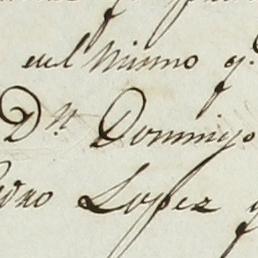 en el mismo q.
Dn Domingo
Pedro Lopez q